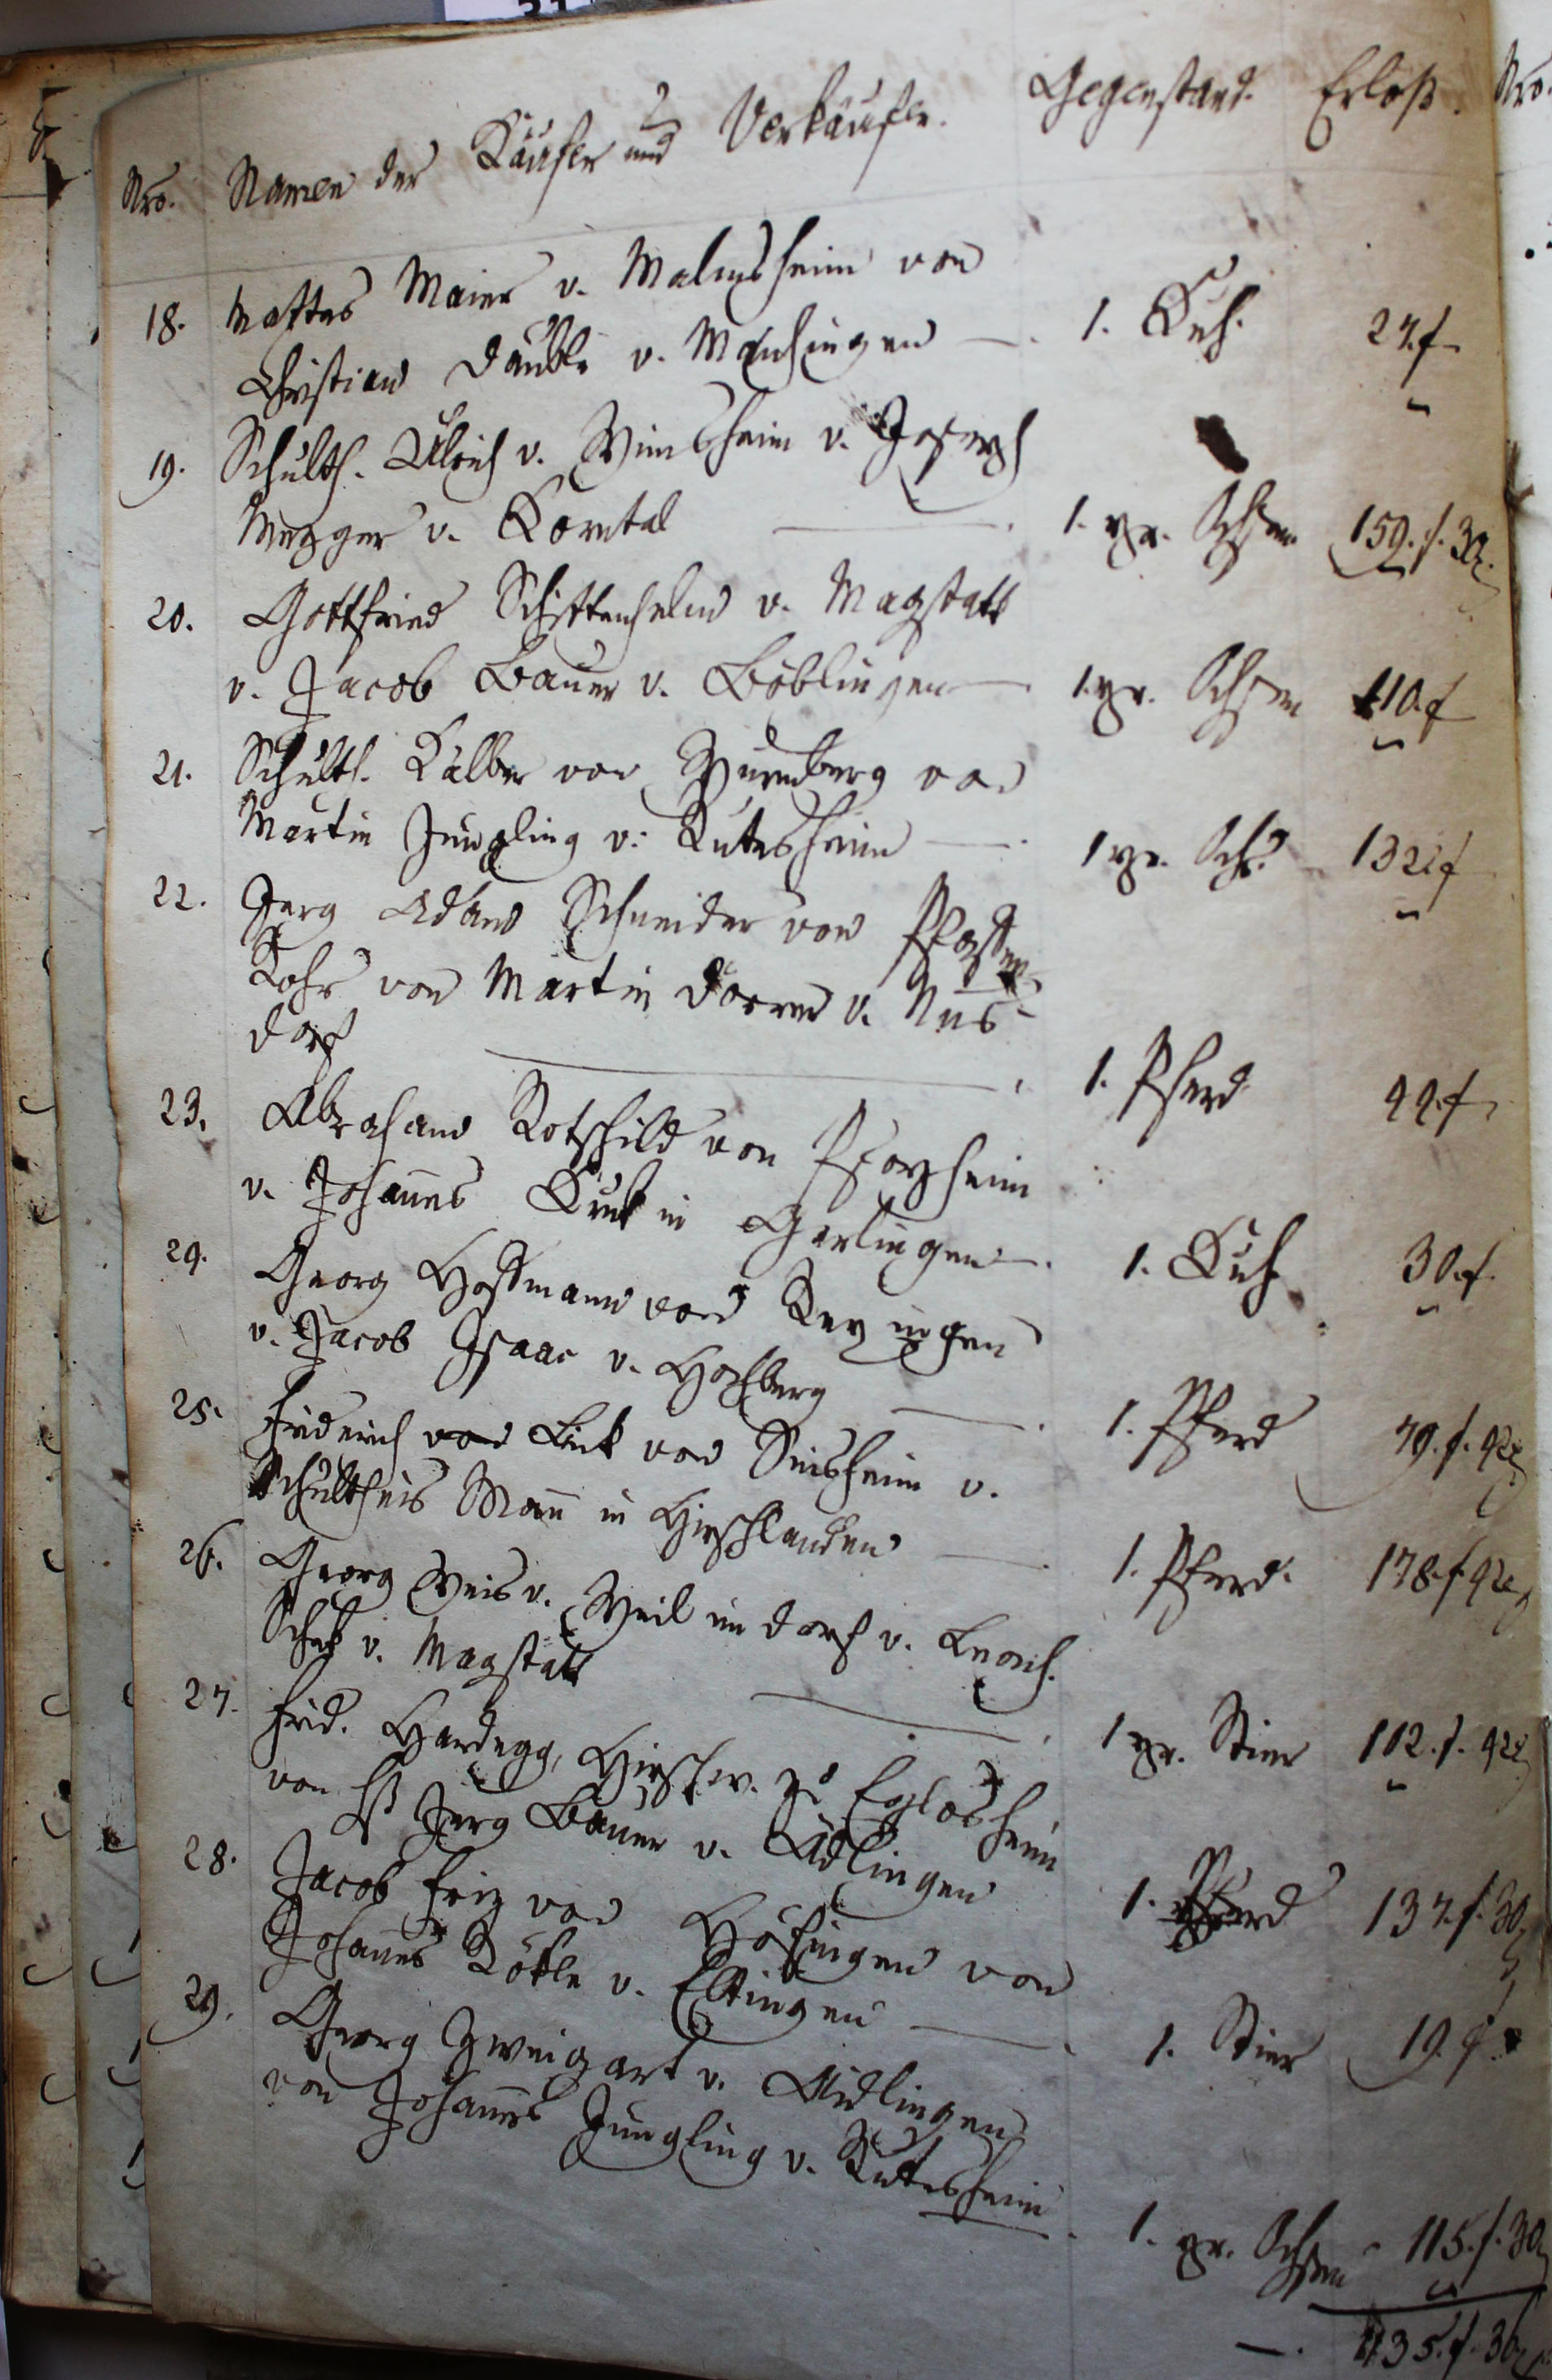 Nro. Namen der Käufer und Verkäufer. Gegenstand. Erloß. Nro.
18. Mattes Maier v. Malmsheim von
Christian Däuble v. Menchingen — 1. Kuh. 27.f
19. Schulth. Ulrich v. Wimsheim v. Joseph
Mezger v. Korntal — 1. pr. Ochsen 159.f.32.
20. Gottfried Schittenhelm v. Magstatt
v. Jacob Bauer v. Böblingen — 1. pr. Ochsen 110.f
21. Schulth. Kälber von Wurmberg von
Martin Jüngling v. Rutesheim — 1 pr. Ochs. 132.f
22. Jerg Adam Schneider von Pfaffen-
Rohr von Martin Dorrer v. Nus-
dorf — 1. Pferd 44.f
23. Abraham Rotschild von Pforzheim
v. Johannes Kruk in Gerlingen — 1. Kuh 30.f.
24. Georg Hoffmann von Renningen
v. Jacob Isaac v. Hochberg — 1. Pferd 79.f.42
25. Friderich von Bik von Sinsheim v.
Schultheis Mann in Hirschlanden — 1. Pferd. 178.f 42
26. Georg Weis v. Weil im Dorf v. Leonh.
Schek v. Magstatt — 1 pr. Stier 112.f.42
27. Frid. Hardegg, Hirschw. zu Eglosheim
von Jerg Bauer v. Aidlingen 1. Pferd 137.f.30
28. Jacob Friz von Höfingen von
Johannes Rökle v. Eltingen — 1. Stier 19.f
29. Georg Zweigart v. Aidlingen
von Johannes Jüngling v. Rutesheim 1. pr. Ochsen 115.f.30
— . 1135.f.30